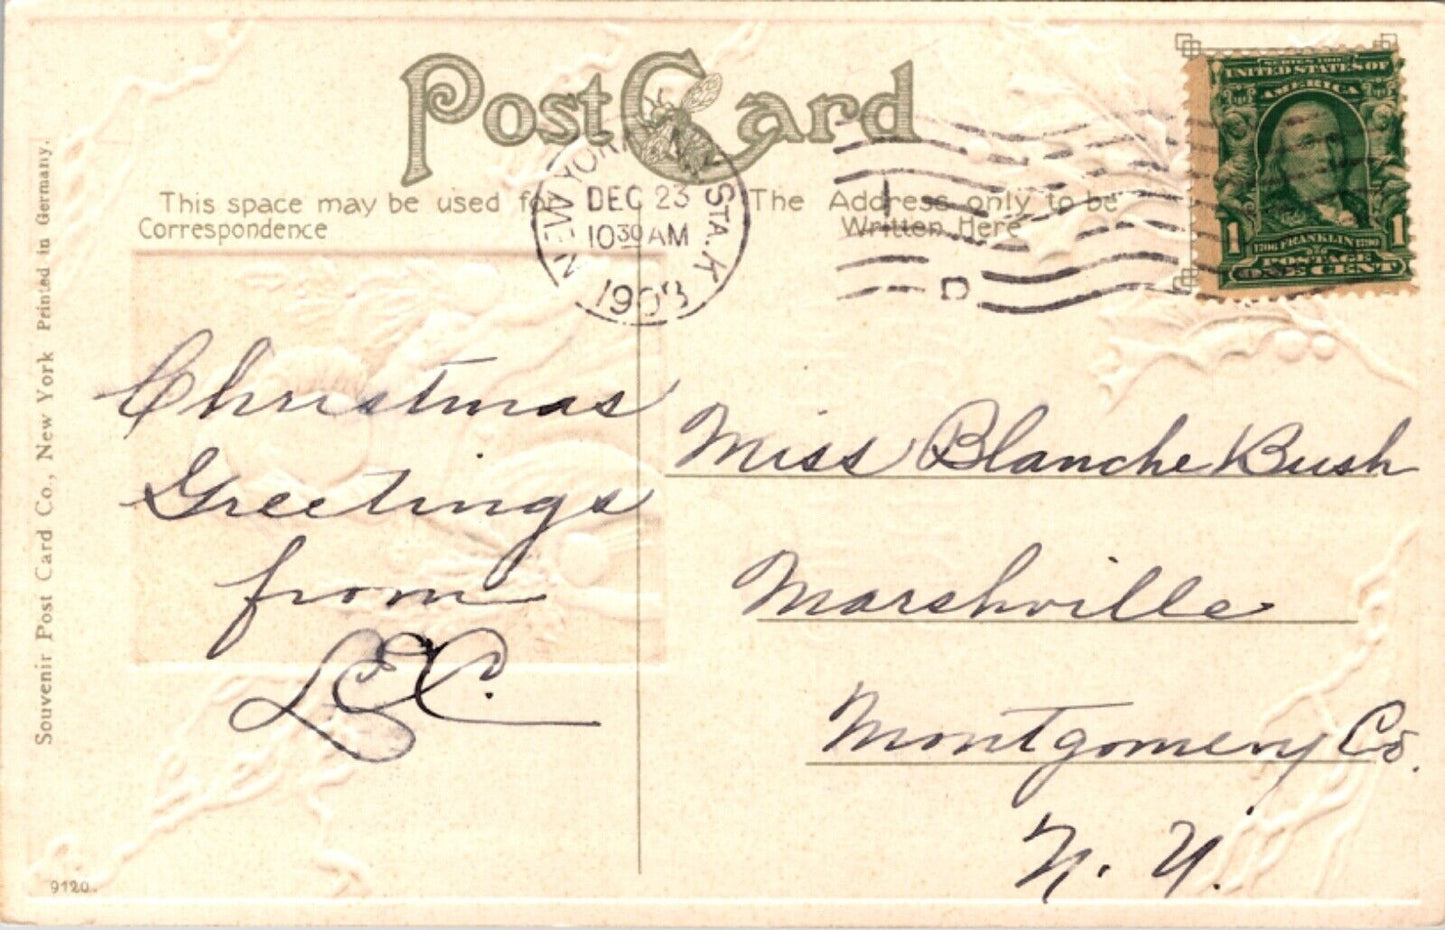 Post Card
This space may be used for
Correspondence
The Address only to be
Written Here
NEW YORK, N.Y. STA. K
DEC 23
10 30 AM
1908
D
SERIES 1902
UNITED STATES OF
AMERICA
1 1706 FRANKLIN 1790 1
POSTAGE
ONE CENT
Christmas
Greetings
from
L.E.C.
Miss Blanche Bush
Marshville
Montgomery Co.
N. Y.
Souvenir Post Card Co., New York Printed in Germany.
9120.